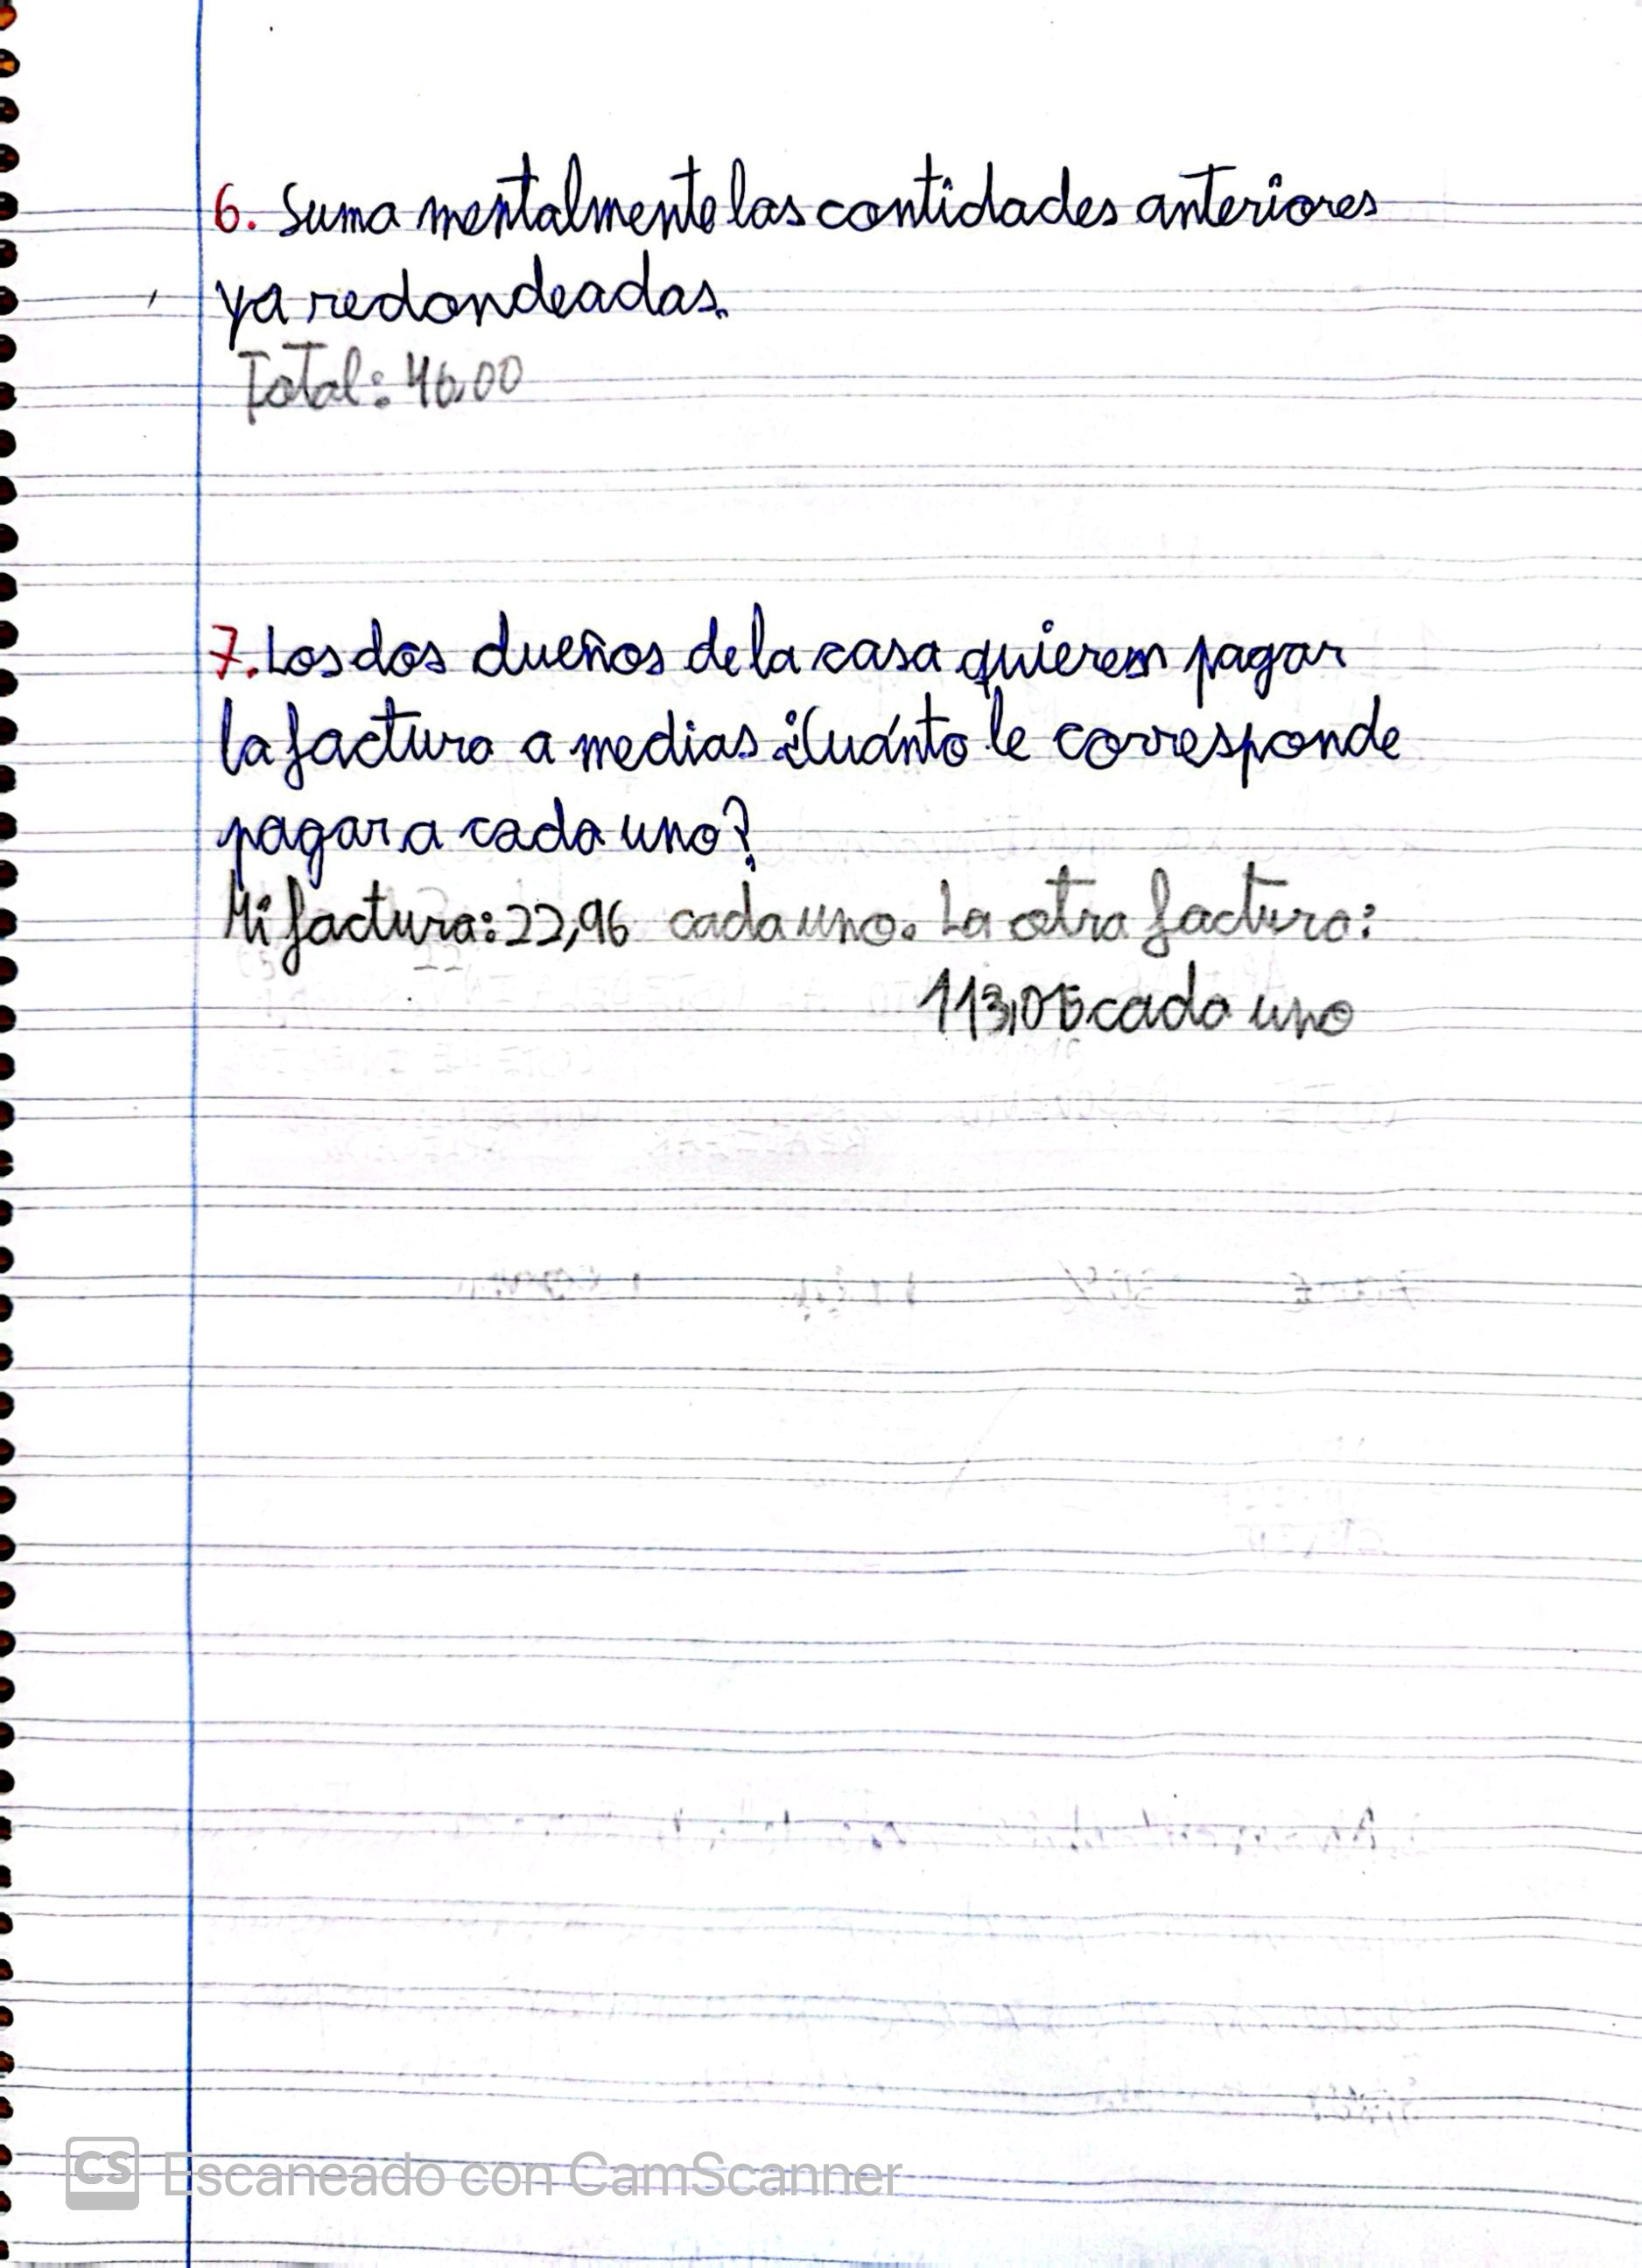 6. Suma mentalmente las contidades anteriores
ya redondeadas.
Total: 46,00
7. Los dos dueños de la casa quieren pagar
la factura a medias ¿Cuánto le corresponde
pagar a cada uno?
Mi factura: 22,96 cada uno. La otra factura:
113,05 cada uno
CS Escaneado con CamScanner